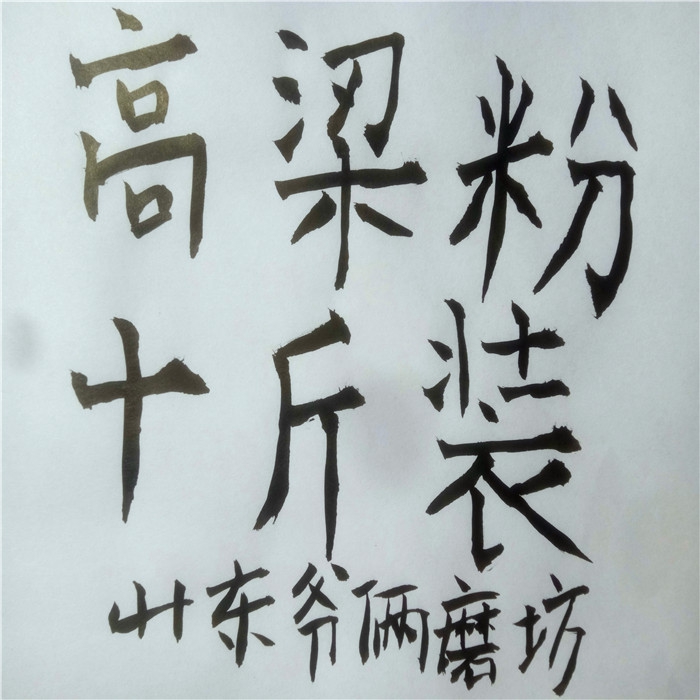 高梁粉
十斤装
山东爷俩磨坊